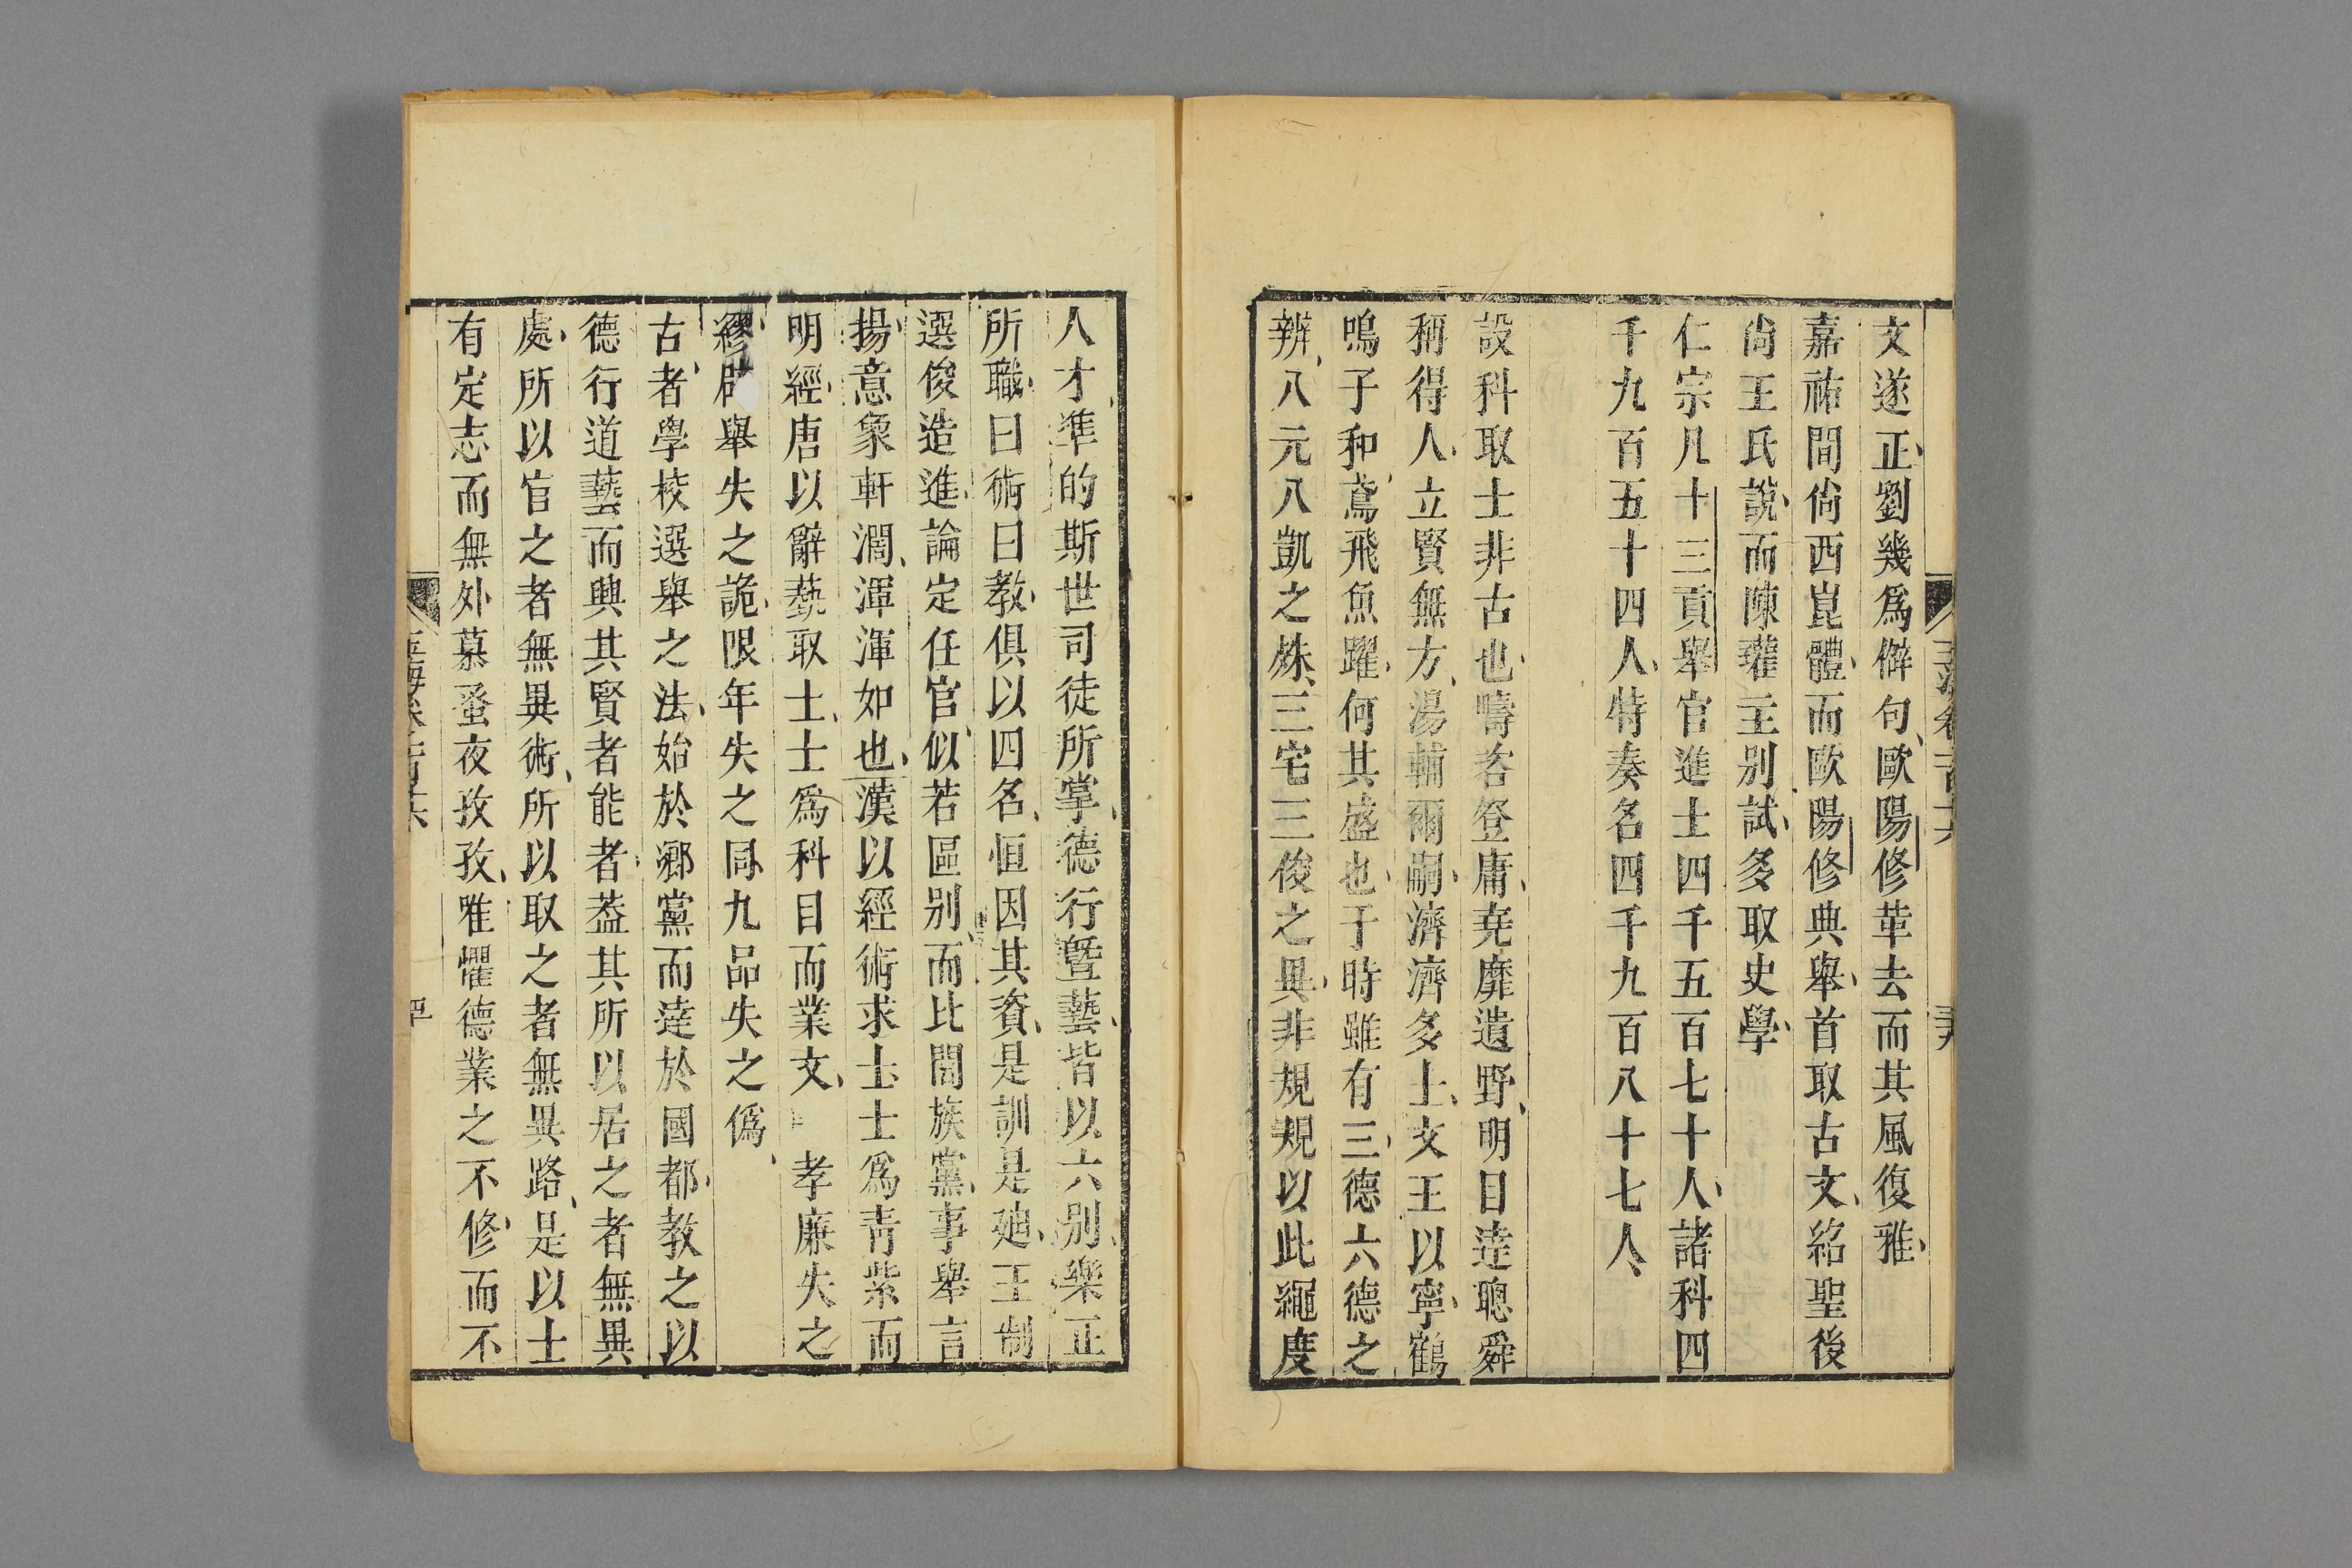 文遂正劉幾爲僻句歐陽修革去而其風復雅
嘉祐間尙西崑體而歐陽修典舉首取古文紹聖後
尙王氏說而陳瓘主別試多取史學
仁宗凡十三貢舉官進士四千五百七十人諸科四
千九百五十四人特奏名四千九百八十七人
設科取士非古也疇咨登庸堯靡遺野明目達聰舜
稱得人立賢無方湯輔爾嗣濟濟多士文王以寧鶴
鳴子和鳶飛魚躍何其盛也于時雖有三德六德之
辨八元八凱之殊三宅三俊之異非規規以此繩度
人才準的斯世司徒所掌德行曁藝皆以六別樂正
所職曰術曰教俱以四名恒因其資是訓是廸王制
選俊造進論定任官似若區別而比閭族黨事舉言
揚意象軒濶渾渾如也漢以經術求士士爲靑紫而
明經唐以辭藝取士士爲科目而業文孝廉失之
繆辟舉失之詭限年失之同九品失之僞
古者學校選舉之法始於鄕黨而達於國都教之以
德行道藝而興其賢者能者葢其所以居之者無異
處所以官之者無異術所以取之者無異路是以士
有定志而無外慕蚤夜孜孜唯懼德業之不修而不